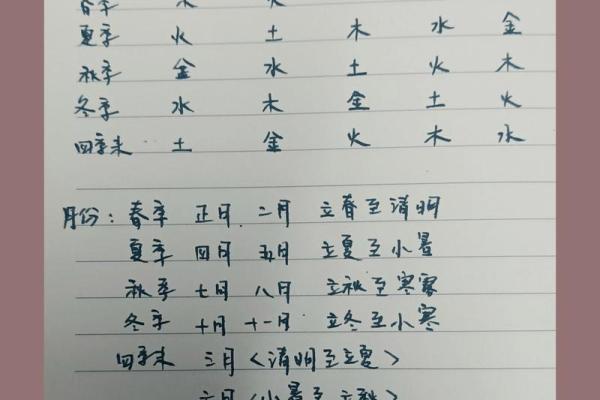 春季 木 火
夏季 火 土 木 水 金
秋季 金 水 土 火 木
冬季 水 木 金 土 火
四季末 土 金 火 木 水
月份：春季 正月 二月 立春至清明
夏季 四月 五月 立夏至小暑
秋季 七月 八月 立秋至寒露
冬季 十月 十一月 立冬至小寒
四季末 三月〈清明至立夏〉
六月〈小暑至立秋〉